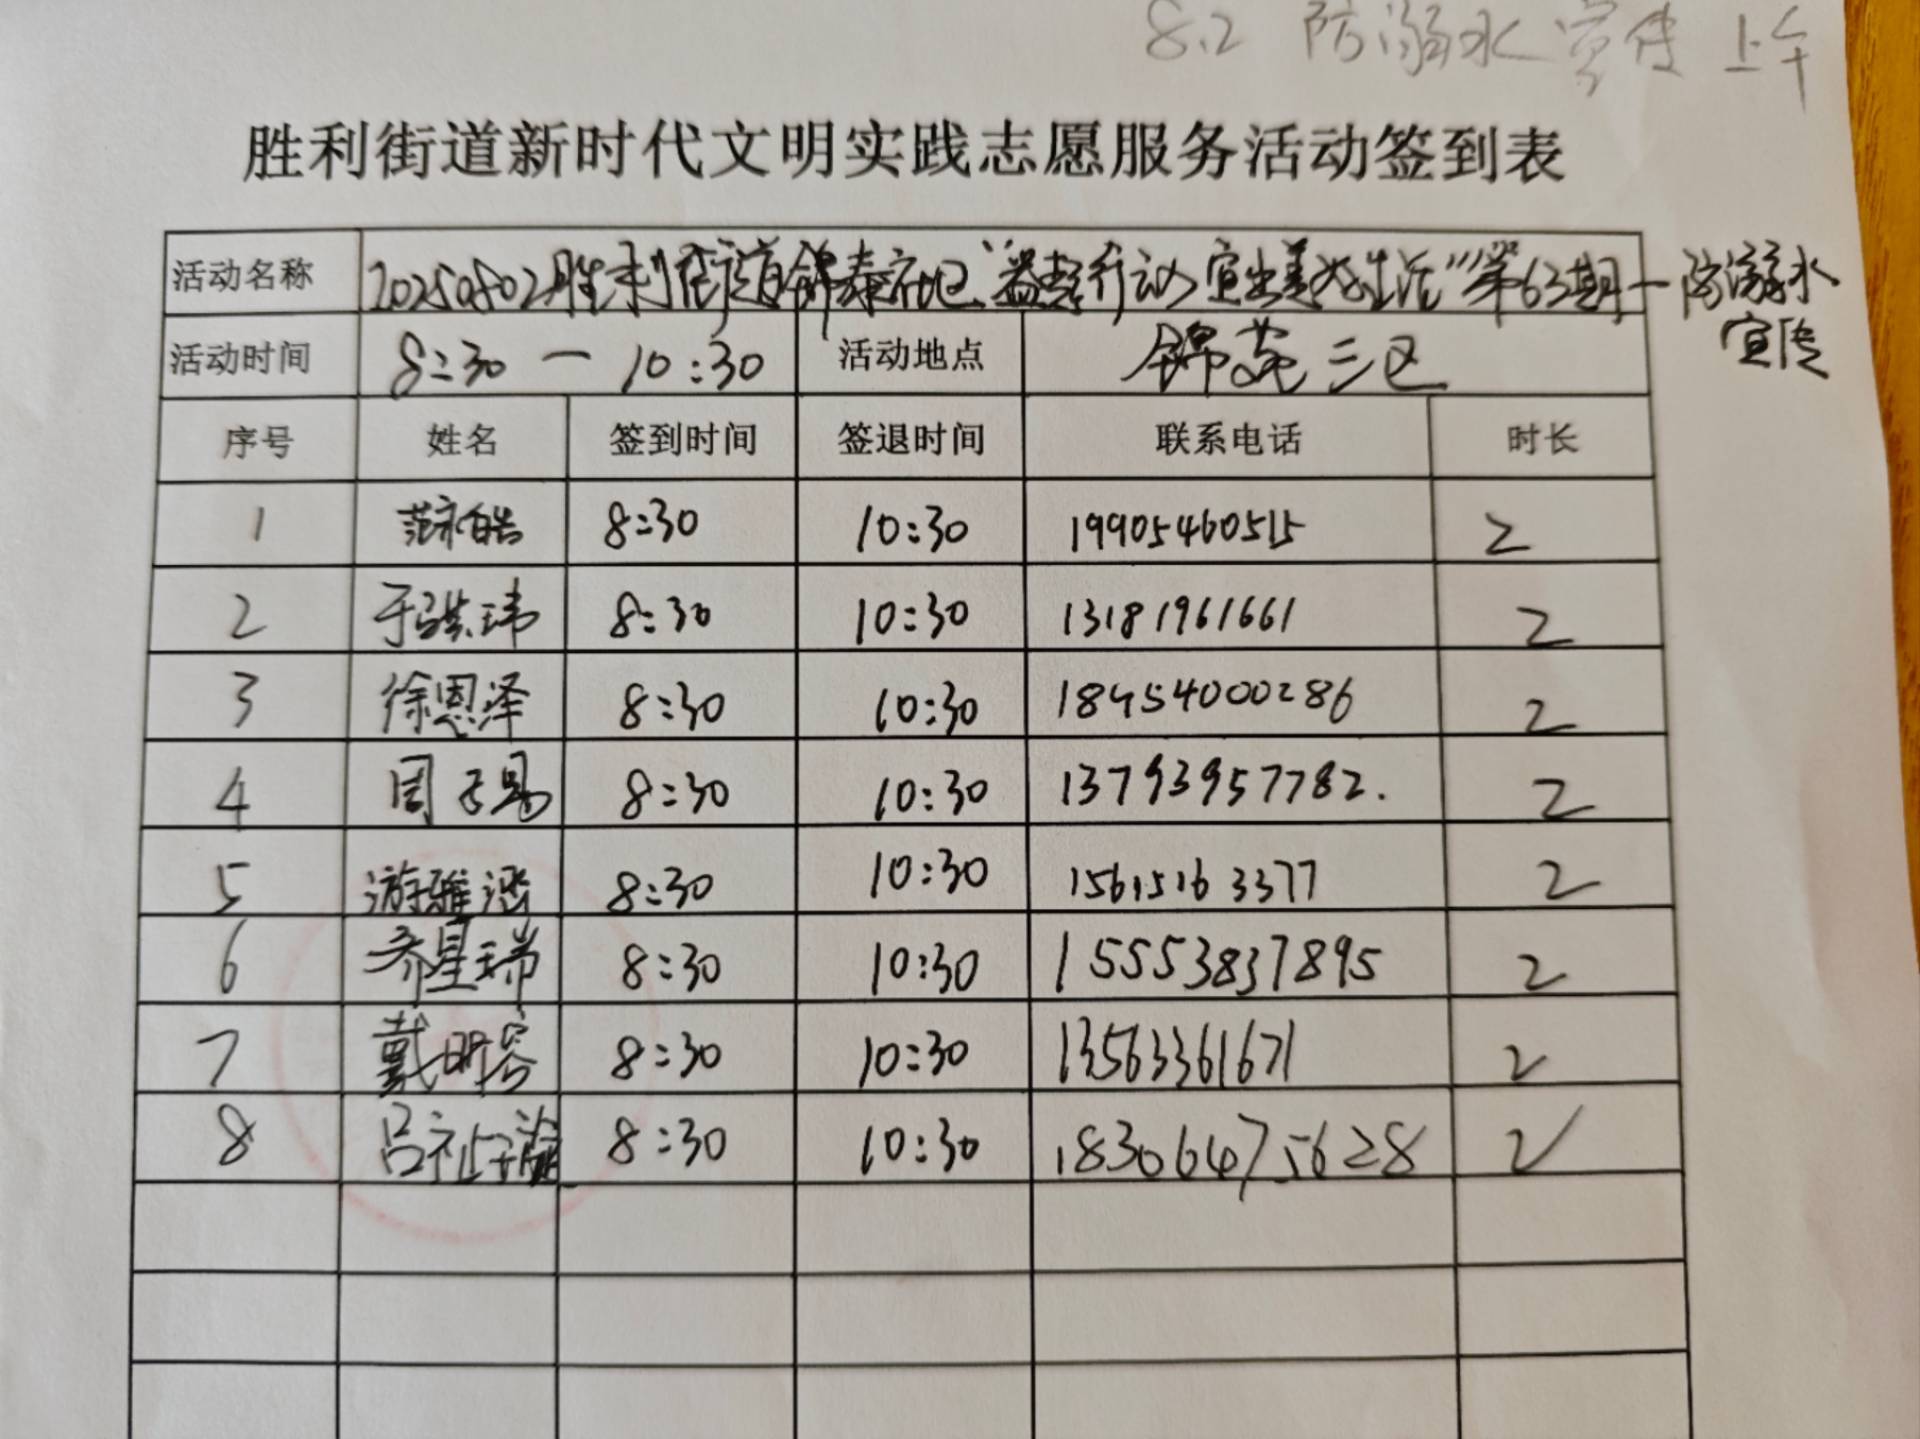 8.2 防溺水宣传 上午
胜利街道新时代文明实践志愿服务活动签到表
活动名称 20250802胜利街道锦泰社区"益起行动 宜生美好生活"第63期—防溺水
宣传
活动时间 8:30 — 10:30 活动地点 锦苑三区
序号 姓名 签到时间 签退时间 联系电话 时长
1 范永皓 8:30 10:30 19905460515 2
2 于骐玮 8:30 10:30 13181961661 2
3 徐恩泽 8:30 10:30 18454000286 2
4 周子易 8:30 10:30 13793957782. 2
5 游雅涵 8:30 10:30 15615163377 2
6 乔星瑞 8:30 10:30 15553837895 2
7 戴明容 8:30 10:30 13563361671 2
8 吕祉 8:30 10:30 18306475628 2